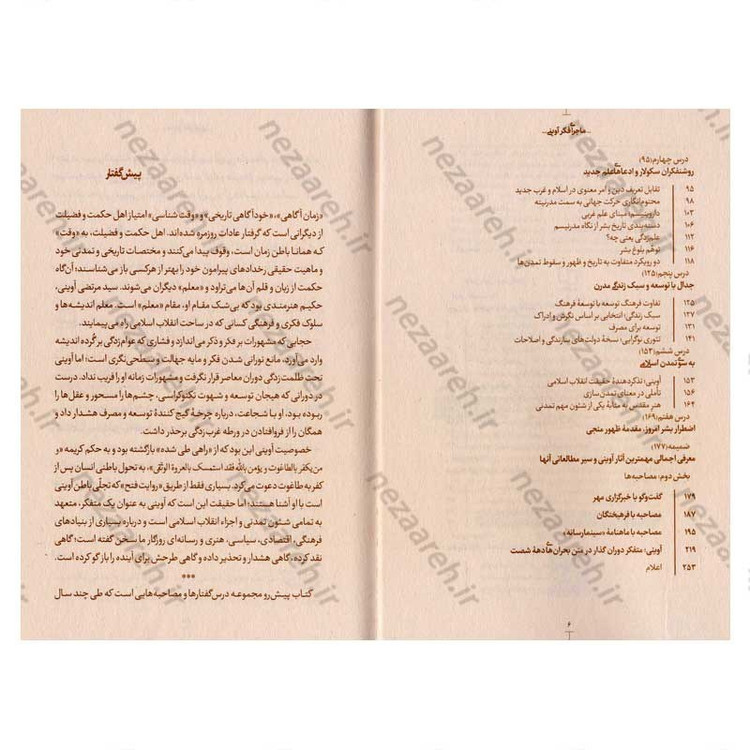 ماجرای فکر آوینی
درس چهارم (۹۵)
روشنفکران سکولار و ادعاهای علم جدید
تقابل تعریف دین و امر معنوی در اسلام و غرب جدید ۹۵
محتوم‌انگاری حرکت جهانی به سمت مدرنیته ۹۸
داروینیسم؛ مبنای علم غربی ۱۰۳
دسته‌بندی تاریخ بشر از نگاه مدرنیسم ۱۰۶
علم‌زدگی یعنی چه؟ ۱۱۲
توهّم بلوغ بشر ۱۱۶
دو رویکرد متفاوت به تاریخ و ظهور و سقوط تمدن‌ها ۱۱۸
درس پنجم (۱۲۵)
جدال با توسعه و سبک زندگی مدرن
تفاوت فرهنگ توسعه با توسعهٔ فرهنگ ۱۲۵
سبک زندگی؛ انتخابی بر اساس نگرش و ادراک ۱۲۷
توسعه برای مصرف ۱۳۱
تئوری نوگرایی؛ نسخهٔ دولت‌های سازندگی و اصلاحات ۱۴۱
درس ششم (۱۵۳)
به سوی تمدن اسلامی
آوینی؛ تذکردهندهٔ حقیقت انقلاب اسلامی ۱۵۳
تأملی در معنای تمدن سازی ۱۵۶
هنر مقدس به مثابهٔ یکی از شئون مهم تمدنی ۱۶۲
درس هفتم (۱۶۹)
اضطرار بشر امروز، مقدمهٔ ظهور منجی
ضمیمه (۱۷۷)
معرفی اجمالی مهمترین آثار آوینی و سیر مطالعاتی آنها
بخش دوم: مصاحبه‌ها
گفت‌وگو با خبرگزاری مهر ۱۷۹
مصاحبه با فرهیختگان ۱۸۷
مصاحبه با ماهنامهٔ «سینمارسانه» ۱۹۵
آوینی؛ متفکر دوران گذار در متن بحران‌های دههٔ شصت ۲۱۹
اعلام ۲۵۳
۶
پیش‌گفتار
«زمان آگاهی»، «خودآگاهی تاریخی» و «وقت شناسی» امتیاز اهل حکمت و فضیلت
از دیگرانی است که گرفتار عادات روزمره شده‌اند. اهل حکمت، به «وقت»
که همانا باطن زمان است، وقوف پیدا می‌کنند و مختصات تاریخی و تمدنی خود
و ماهیت حقیقی رخدادهای پیرامون خود را بهتر از هرکسی باز می‌شناسند؛ آن‌گاه
حکمت از زبان و قلم آن‌ها می‌تراود و «معلم» دیگران می‌شوند. سید مرتضی آوینی،
حکیم هنرمندی بود که بی‌شک مقام او، مقام «معلم» است. معلم اندیشه‌ها و
سلوک فکری و فرهنگی کسانی که در ساحت انقلاب اسلامی راه می‌پیمایند.
حجابی که مشهورات بر فکر و ذکر می‌اندازد و فشاری که عوام‌زدگی بر گُرده اندیشه
وارد می‌آورد، مانع نورانی شدن فکر و مایه جهالت و سطحی‌نگری است؛ اما آوینی
تحت ظلمت‌زدگی دوران معاصر قرار نگرفت و مشهورات زمانه او را نقاد نکرد. درست
در دورانی که هیجان توسعه و شهوت تکنوکراسی، چشم‌ها را مسحور و عقل‌ها را
ربوده بود، او با شجاعت، درباره چرخهٔ گیج کنندهٔ توسعه و مصرف هشدار داد و
همگان را از فروافتادن در ورطه غرب‌زدگی برحذر داشت.
خصوصیت آوینی این بود که از «راهی طی شده» بازگشته بود و به حکم کریمه «و
من یکفر بالطاغوت و یؤمن بالله فقد استمسک بالعروة الوثقی»، به تحول باطنی انسان پس از
کفر به طاغوت دعوت می‌کرد. بسیاری فقط از طریق «روایت فتح» که تجلّی باطن آوینی
است با او آشنا هستند؛ اما حقیقت این است که آوینی به عنوان یک متفکر، متعهد
به تمامی شئون تمدنی و اجزاء انقلاب اسلامی است و درباره بسیاری از بنیادهای
فرهنگی، اقتصادی، سیاسی، هنری و رسانه‌ای روزگار ما سخن گفته است؛ گاهی
نقد کرده، گاهی هشدار و تحذیر داده و گاهی طرحش برای آینده را بازگو کرده است.
***
کتاب پیش‌رو مجموعه درس‌گفتارها و مصاحبه‌هایی است که طی چند سال
nezaareh.ir
nezaareh.ir
nezaareh.ir
nezaareh.ir
nezaareh.ir
nezaareh.ir